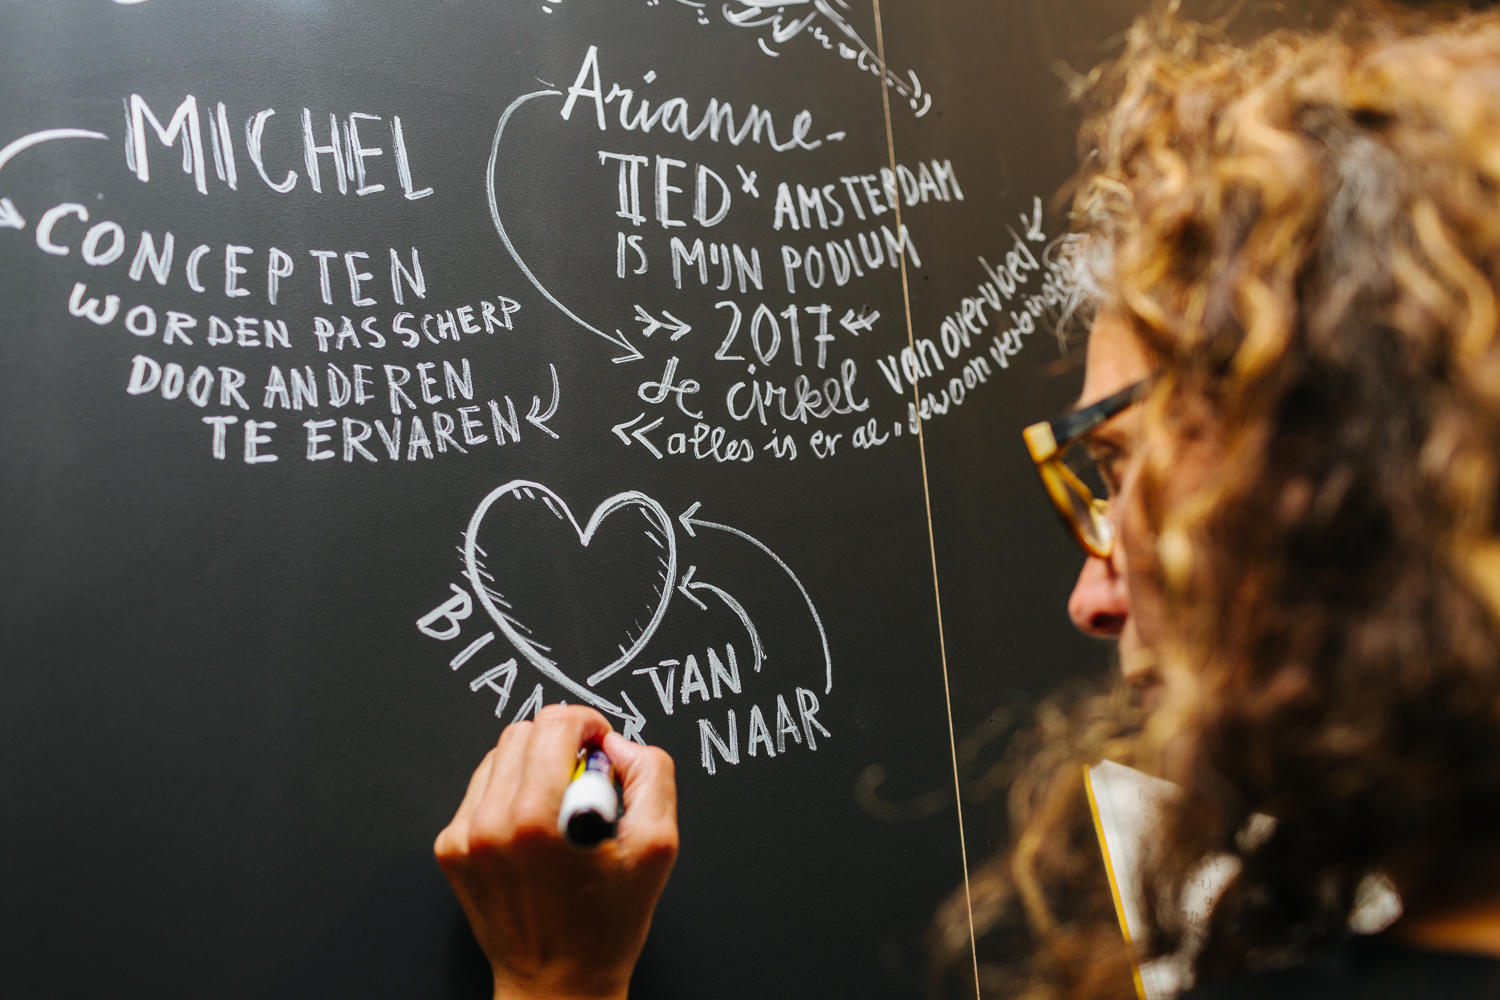 MICHEL
CONCEPTEN
WORDEN PAS SCHERP
DOOR ANDEREN
TE ERVAREN
Arianne-
TEDx AMSTERDAM
IS MIJN PODIUM
2017
de cirkel van overvloed
alles is er al, gewoon verbinden
BIAN
VAN
NAAR